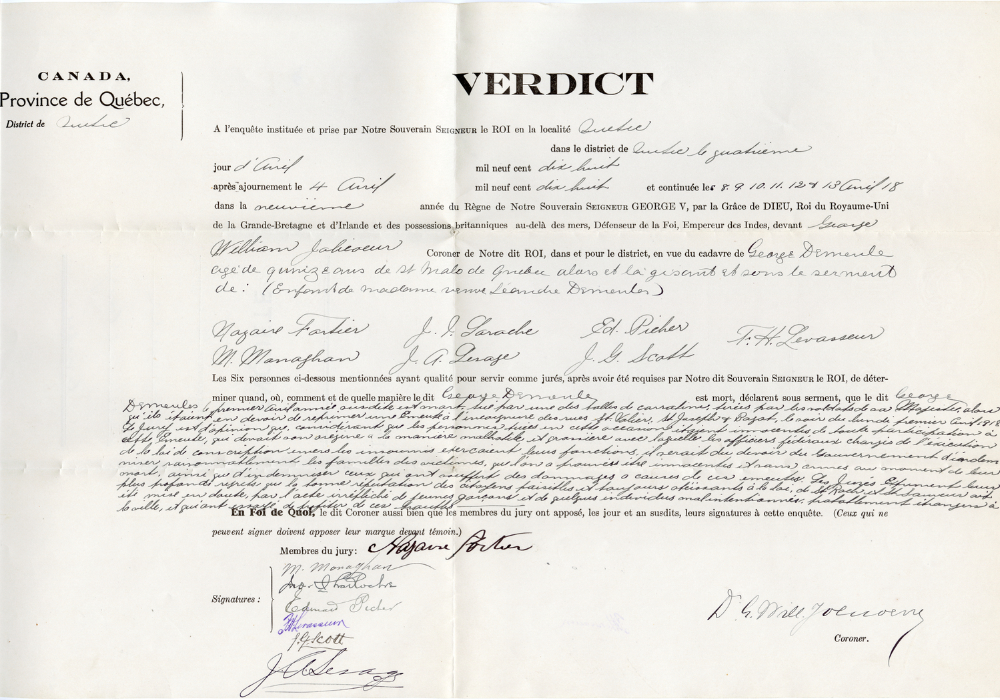 CANADA,
Province de Québec,
District de Québec
VERDICT
A l'enquête instituée et prise par Notre Souverain SEIGNEUR le ROI en la localité Québec
dans le district de Québec le quatrième
jour d'Avril mil neuf cent dix huit
après ajournement le 4 Avril mil neuf cent dix huit et continuée les 8. 9 10. 11. 12 & 13 Avril 18
dans la neuvième année du Règne de Notre Souverain SEIGNEUR GEORGE V, par la Grâce de DIEU, Roi du Royaume-Uni
de la Grande-Bretagne et d'Irlande et des possessions britanniques au-delà des mers, Défenseur de la Foi, Empereur des Indes, devant George
William Jolicoeur Coroner de Notre dit ROI, dans et pour le district, en vue du cadavre de George Demeule
agé de quinze ans de St Malo de Québec alors et là gisant et sous le serment
de : (Enfant de madame veuve Léandre Demeules)
Nazaire Fortier J. I. Larache Ed. Picher F. H. Levasseur
M. Monaghan J. A. Lesage J. G. Scott
Les Six personnes ci-dessous mentionnées ayant qualité pour servir comme jurés, après avoir été requises par Notre dit Souverain SEIGNEUR le ROI, de déter-
miner quand, où, comment et de quelle manière le dit George Demeule est mort, déclarent sous serment, que le dit George
Demeules le premier Avril année susdite est mort, tué par une des balles de carabine, tirées par les soldats de sa Majesté, alors
qu'ils étaient en devoir de réprimer une Emeute à l'encoignure des rues St Valier, St Joseph & Bagot, le soir du lundi premier Avril 1918.
Le Jury est d'opinion que, considérant que les personnes tuées en cette occasion étaient innocentes de toute participation à
cette Emeute, qui devait son origine à la manière malhabile, et grossière avec laquelle les officiers fédéraux chargés de l'exécution
de la loi de conscription envers les insoumis exerçaient leurs fonctions, il serait du devoir du Gouvernement d'indem
niser raisonnablement les familles des victimes, que l'on a prouvées être innocentes et sans armes au moment de leur
mort, ainsi que d'indemniser ceux qui ont souffert des dommages à causes de ces émeutes. Les Jurés expriment leur
plus profonds regrets que la bonne réputation des citoyens paisibles, et toujours obéissants à la loi, de St Roch et St Sauveur ait
été mise en doute, par l'acte irréfléchi de jeunes garçons et de quelques individus malintentionnés, probablement étrangers à
la ville, et qui ont essayé de profiter de ces troubles
En Foi de Quoi, le dit Coroner aussi bien que les membres du jury ont apposé, les jour et an susdits, leurs signatures à cette enquête. (Ceux qui ne
peuvent signer doivent apposer leur marque devant témoin.)
Membres du jury : Nazaire Fortier
M. Monaghan
Signatures :
Edmund Picher
J. G. Scott
J A Lesage
Dr G. Will. Jolicoeur
Coroner.